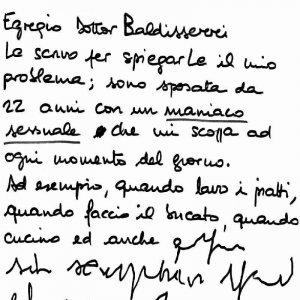 Egregio Dottor Baldisserri
Le scrivo per spiegarLe il mio
problema; sono sposata da
22 anni con un maniaco
sessuale che mi scopa ad
ogni momento del giorno.
Ad esempio, quando lavo i piatti,
quando faccio il bucato, quando
cucino ed anche